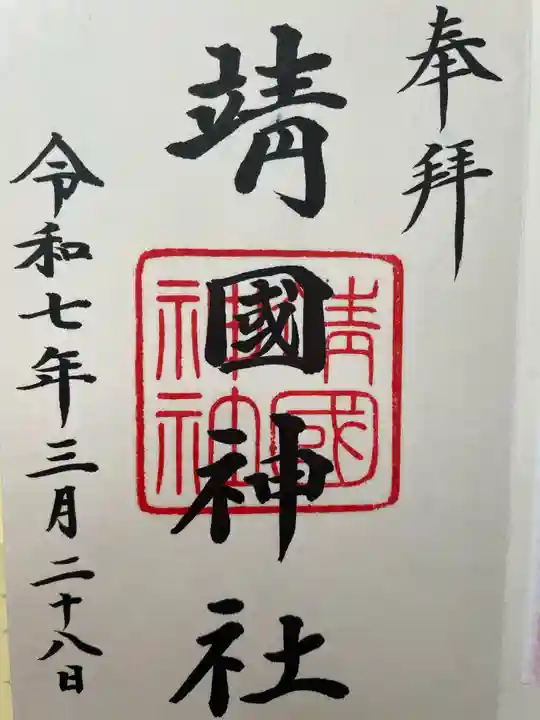 奉拝
靖國神社
靖國神社
令和七年三月二十八日